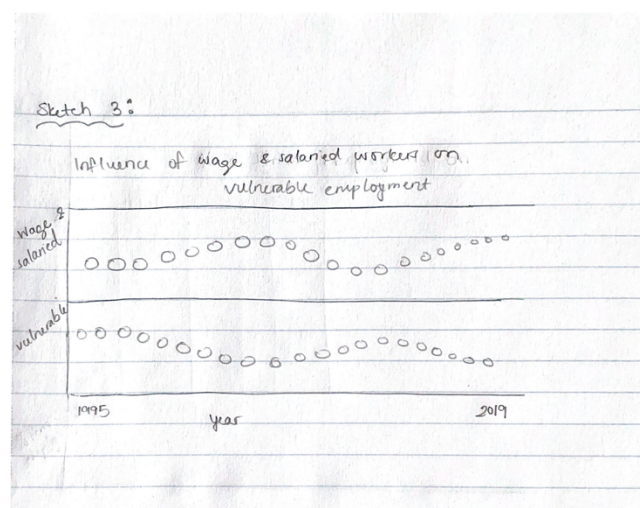 Sketch 3:
Influence of wage & salaried workers on
vulnerable employment
wage &
salaried
vulnerable
1995
year
2019